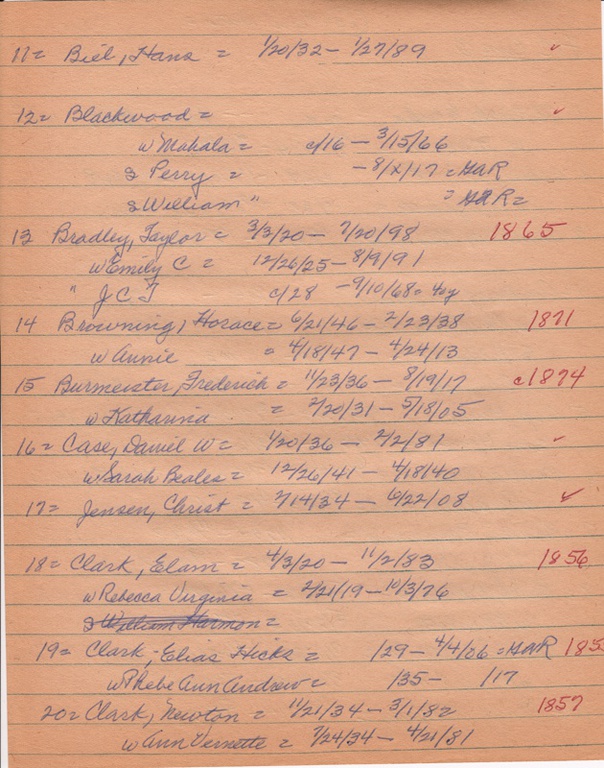 11= Biel, Hans = 1/20/32 - 1/27/89 ✓
12= Blackwood = ✓
w Mahala = c/16 - 3/15/66
& Perry = - 8/x/17 = GAR
& William " = GAR =
13 Bradley, Taylor = 3/3/20 - 7/20/98 1865
w Emily C = 12/26/25 - 8/9/91
" J C T c/28 - 9/10/68 = 40y
14 Browning, Horace = 6/21/46 - 2/23/38 1871
w Annie = 4/18/47 - 4/24/13
15 Burmeister, Frederick = 11/23/36 - 8/19/17 c1874
w Katharina = 2/20/31 - 5/18/05
16= Case, Daniel W = 1/20/36 - 2/2/81 ✓
w Sarah Beales = 12/26/41 - 4/18/40
17= Jensen, Christ = 2/14/34 - 6/22/08 ✓
18= Clark, Elam = 4/3/20 - 11/2/83 1856
w Rebecca Virginia = 2/21/19 - 10/3/76
& William Harmon =
19= Clark, Elias Hicks = /29 - 4/4/06 = GAR 185
w Phebe Ann Andrew = /35 - /17
20= Clark, Newton = 11/21/34 - 3/1/82 1857
w Ann Vernette = 7/24/34 - 4/21/81